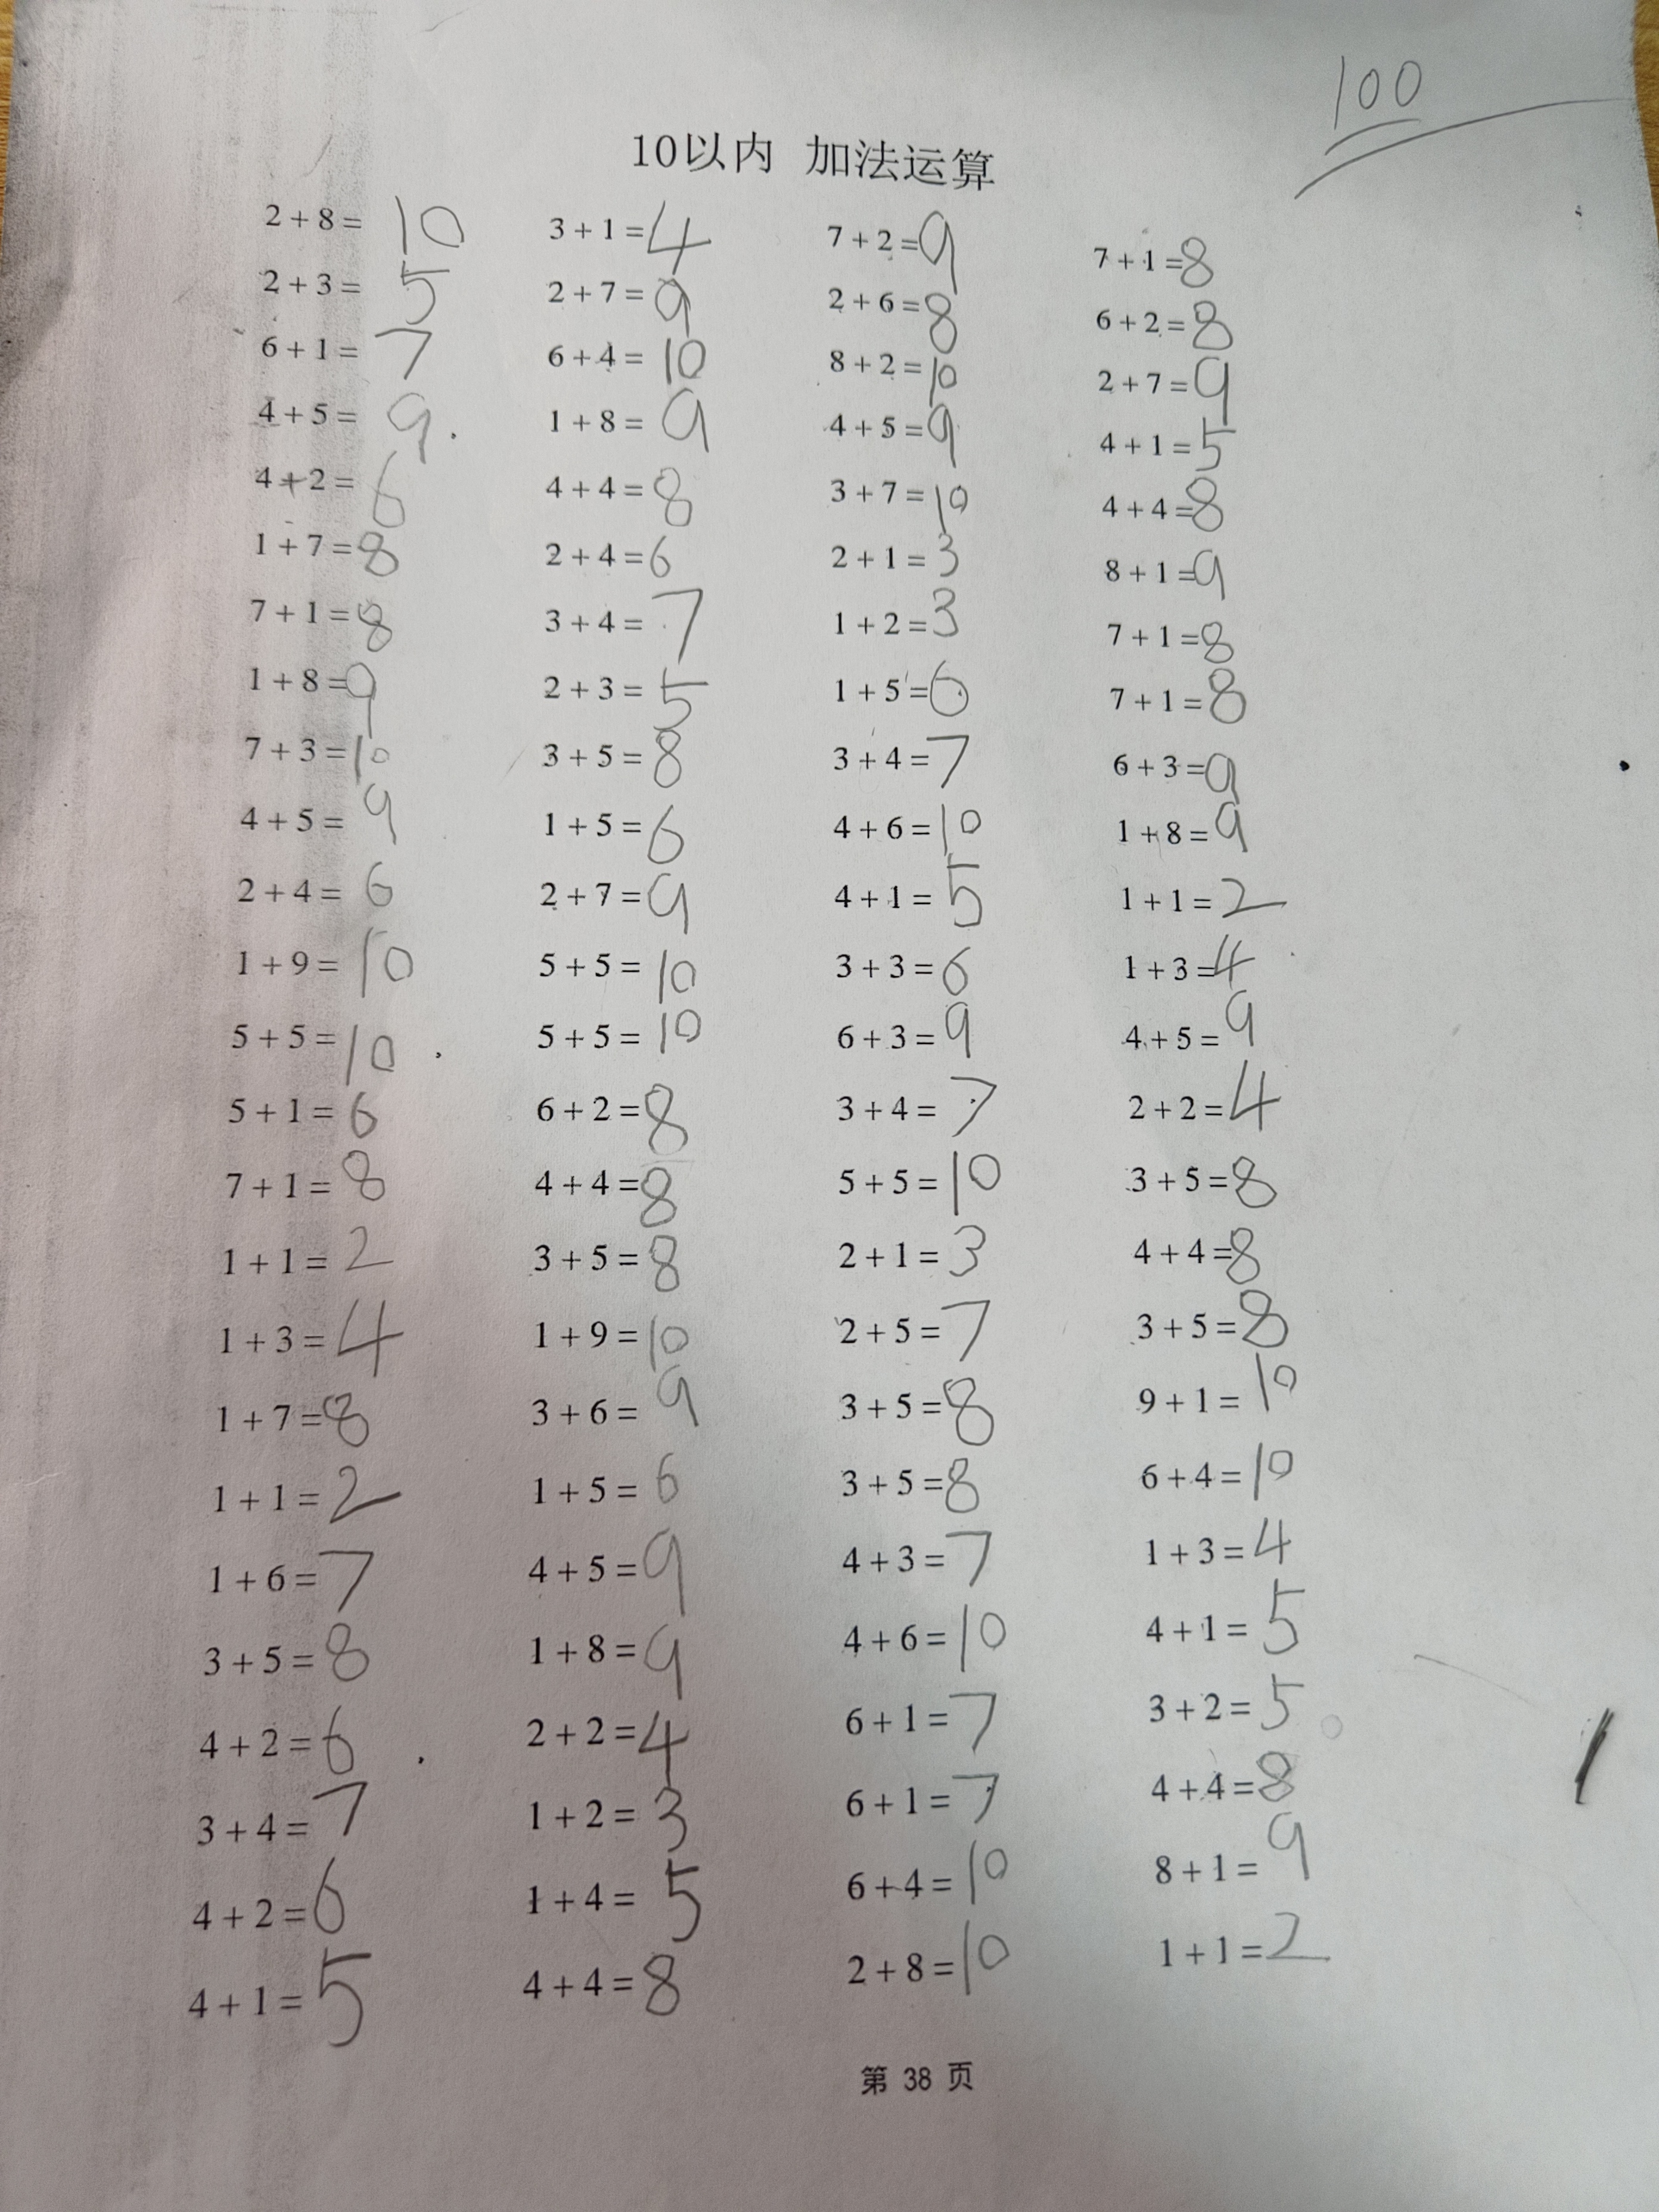 100
10以内 加法运算
2+8=10 3+1=4 7+2=9 7+1=8
2+3=5 2+7=9 2+6=8 6+2=8
6+1=7 6+4=10 8+2=10 2+7=9
4+5=9 1+8=9 4+5=9 4+1=5
4+2=6 4+4=8 3+7=10 4+4=8
1+7=8 2+4=6 2+1=3 8+1=9
7+1=8 3+4=7 1+2=3 7+1=8
1+8=9 2+3=5 1+5=6 7+1=8
7+3=10 3+5=8 3+4=7 6+3=9
4+5=9 1+5=6 4+6=10 1+8=9
2+4=6 2+7=9 4+1=5 1+1=2
1+9=10 5+5=10 3+3=6 1+3=4
5+5=10 5+5=10 6+3=9 4+5=9
5+1=6 6+2=8 3+4=7 2+2=4
7+1=8 4+4=8 5+5=10 3+5=8
1+1=2 3+5=8 2+1=3 4+4=8
1+3=4 1+9=10 2+5=7 3+5=8
1+7=8 3+6=9 3+5=8 9+1=10
1+1=2 1+5=6 3+5=8 6+4=10
1+6=7 4+5=9 4+3=7 1+3=4
3+5=8 1+8=9 4+6=10 4+1=5
4+2=6 2+2=4 6+1=7 3+2=5
3+4=7 1+2=3 6+1=7 4+4=8
4+2=6 1+4=5 6+4=10 8+1=9
4+1=5 4+4=8 2+8=10 1+1=2
第 38 页